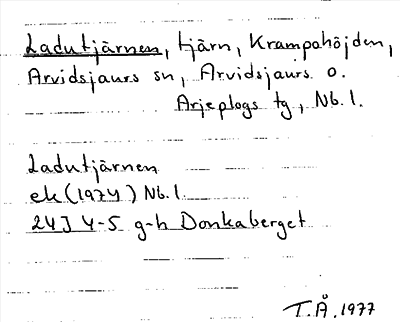 Ladutjärnen, tjärn, Krampahöjden,
Arvidsjaurs sn, Arvidsjaurs o.
Arjeplogs tg, Nb. l.
Ladutjärnen
ek (1974) Nb. l.
24J 4-5 g-h Donkaberget
T.Å. 1977